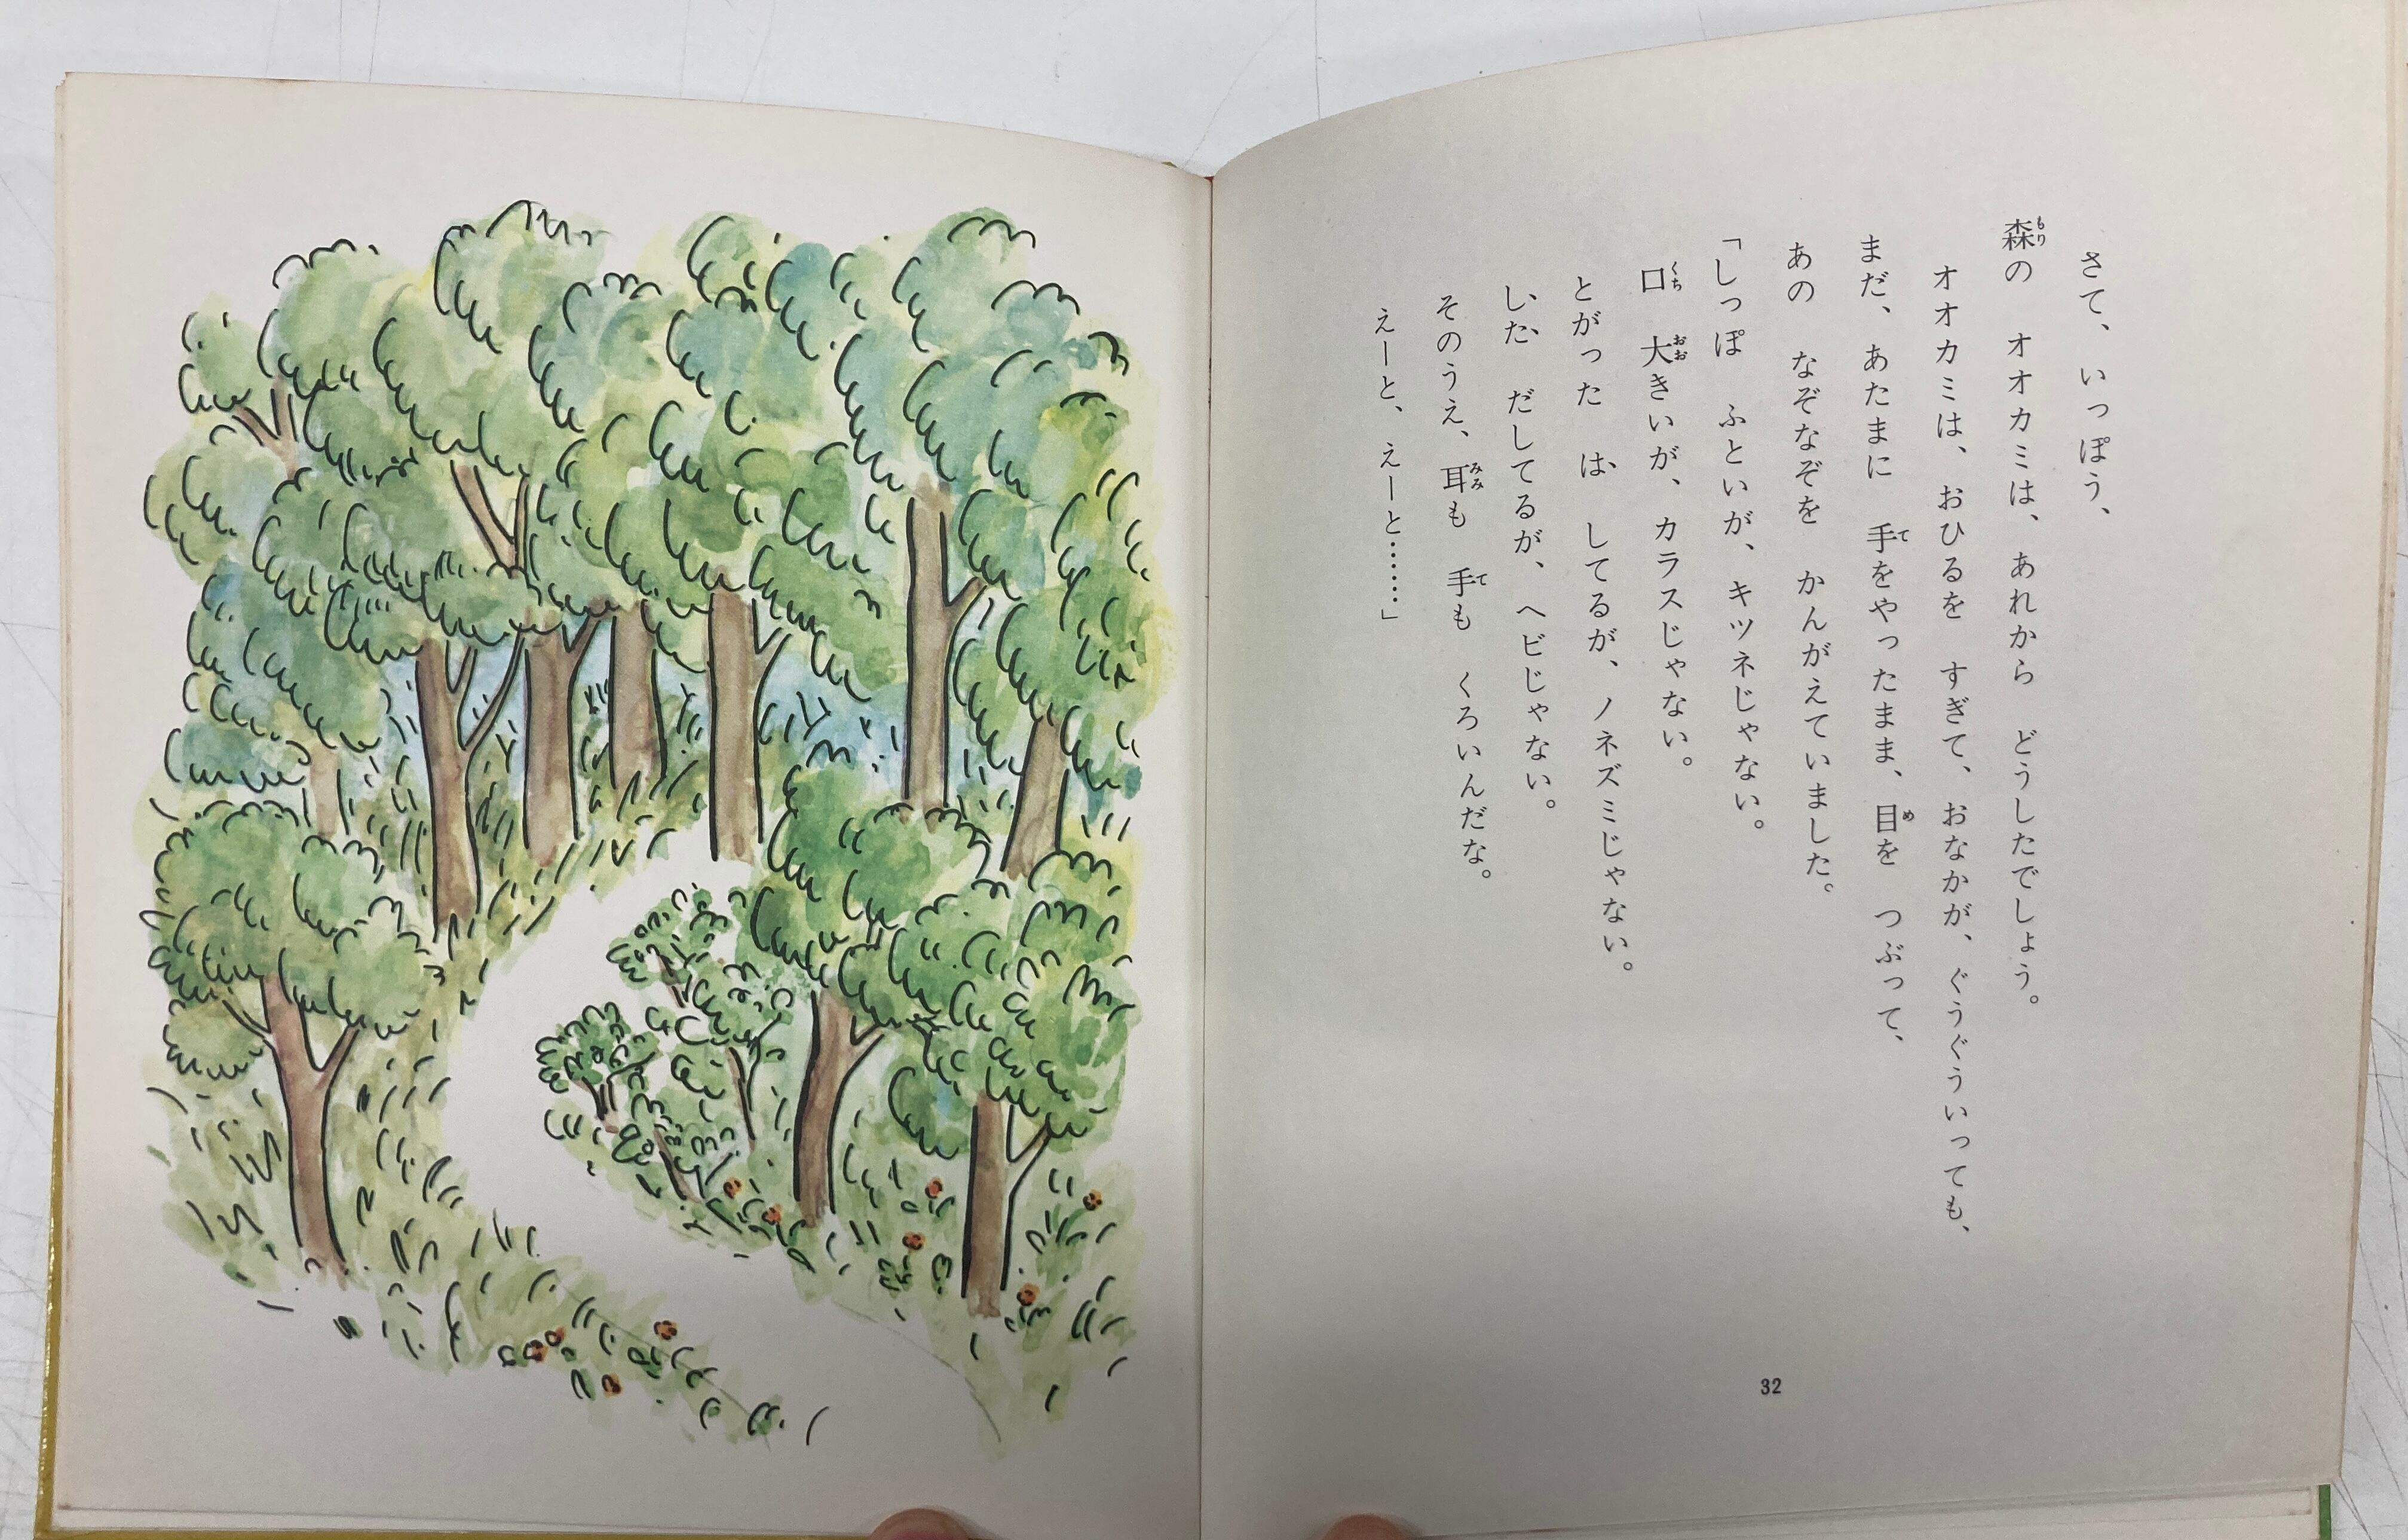 さて、いっぽう、
森の　オオカミは、あれから　どうしたでしょう。
オオカミは、おひるを　すぎて、おなかが、ぐうぐういっても、
まだ、あたまに　手をやったまま、目を　つぶって、
あの　なぞなぞを　かんがえていました。
「しっぽ　ふといが、キツネじゃない。
口　大きいが、カラスじゃない。
とがった　は　してるが、ノネズミじゃない。
した　だしてるが、ヘビじゃない。
そのうえ、耳も　手も　くろいんだな。
えーと、えーと……」
32